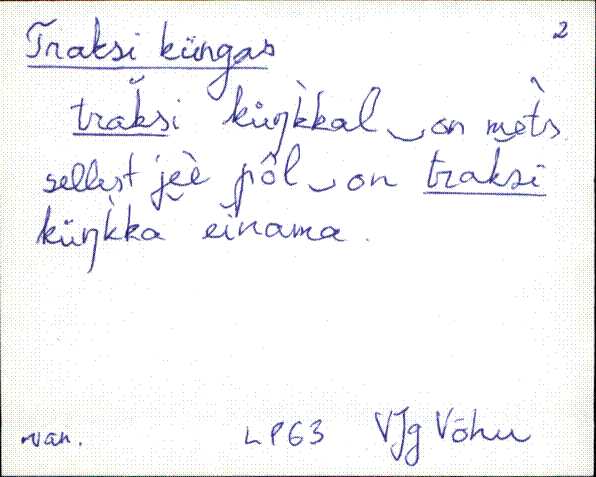 Traksi küngas 2
trak̆si küŋ̀kkal‿on mèt's
sellest jèe pôl‿on trak̆si
küŋ̀kka einama.
van. LP63 VJg Võhu